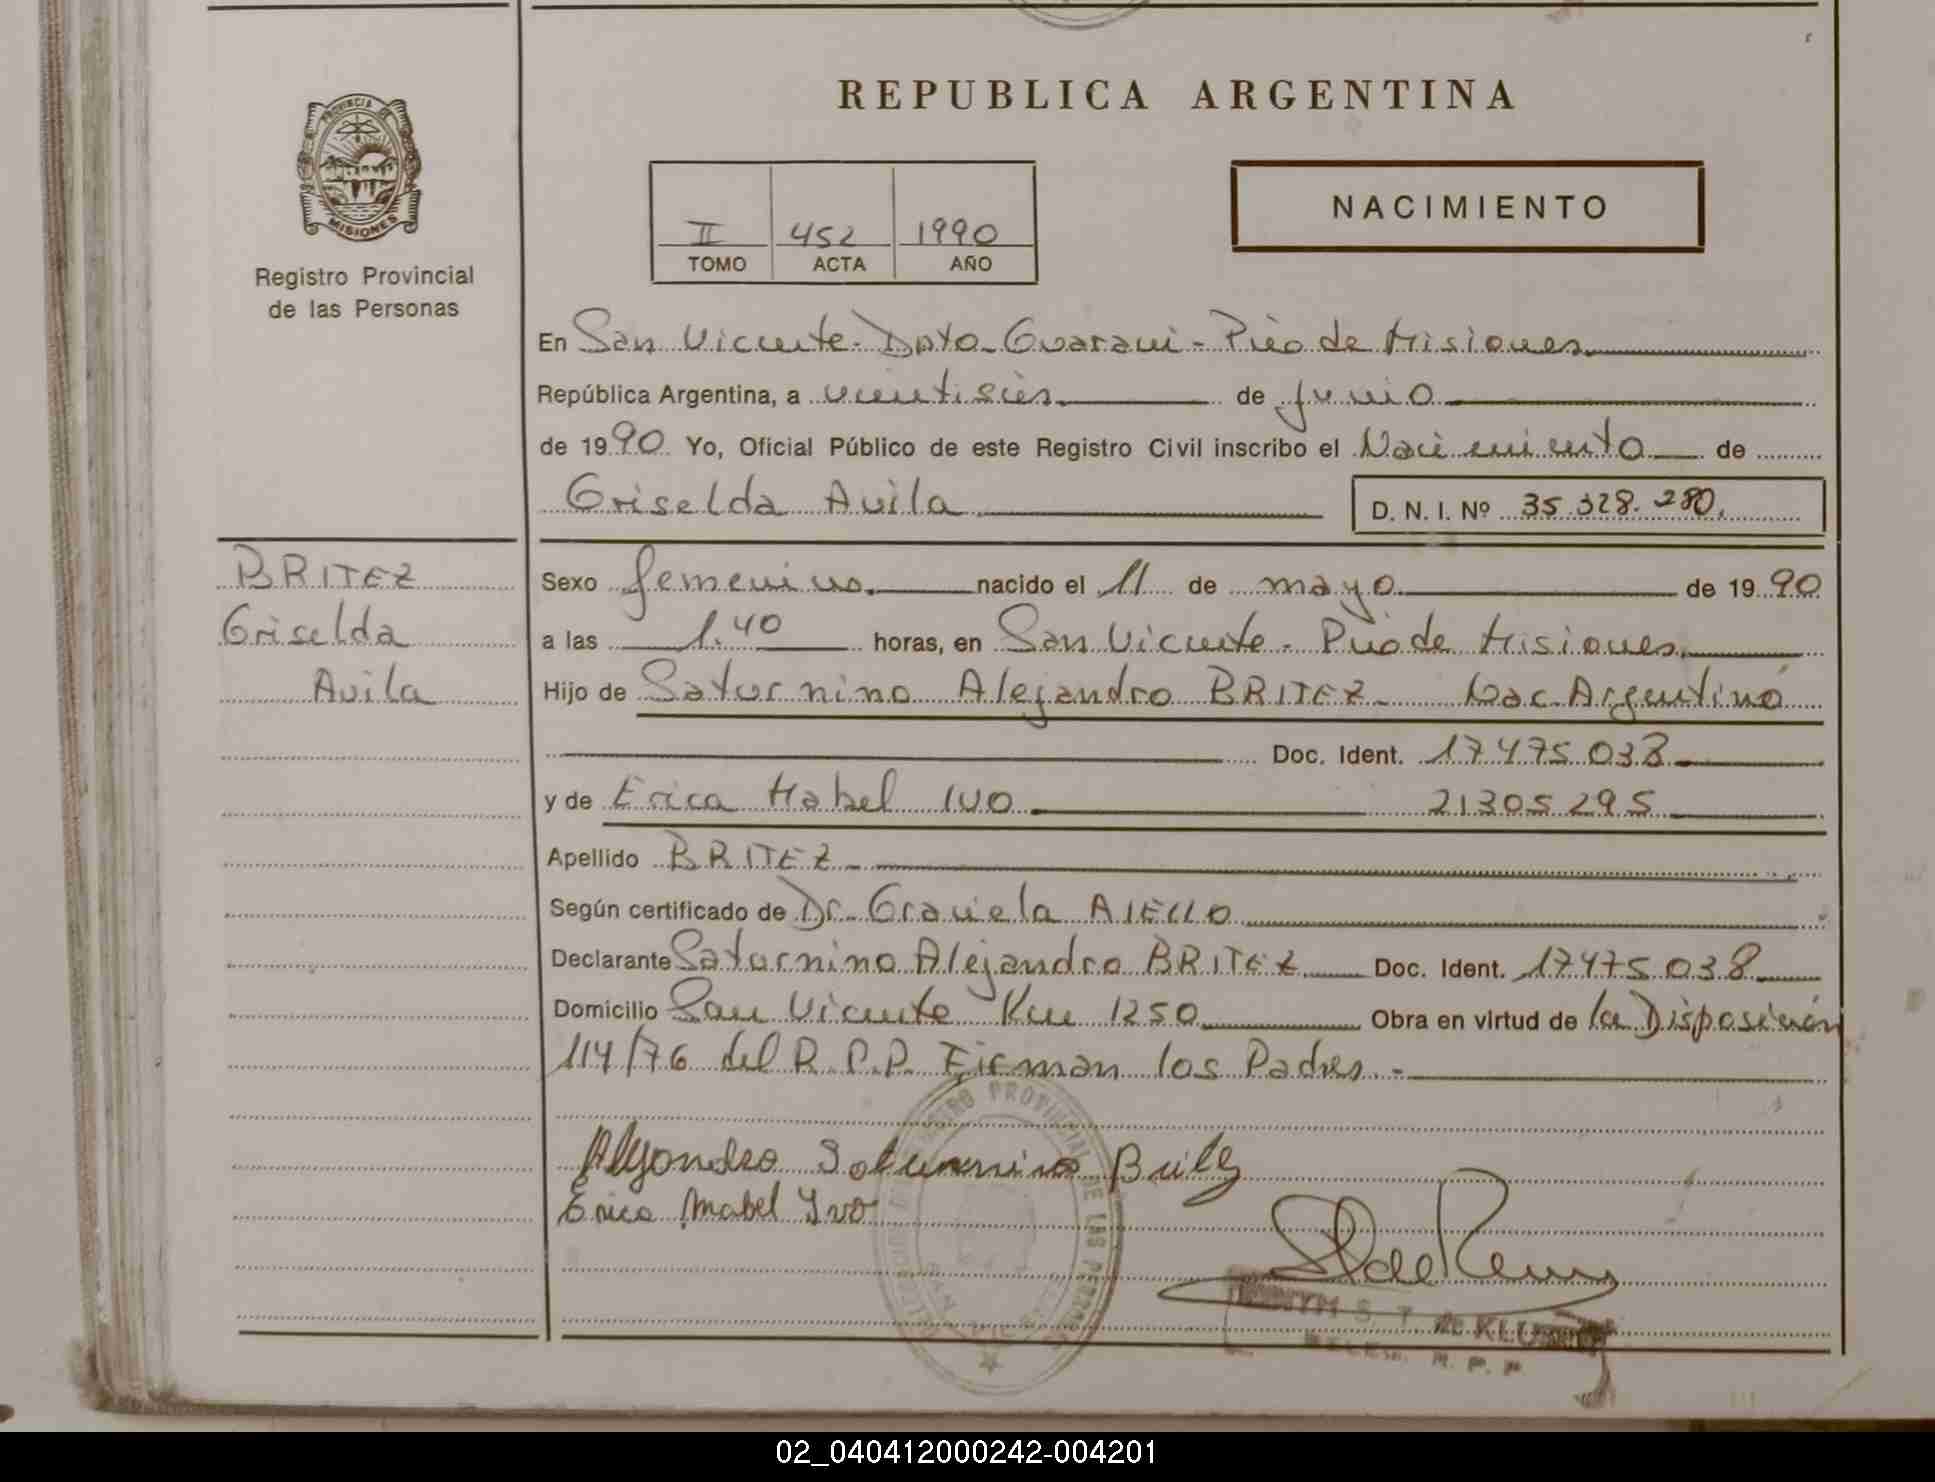 PROVINCIA DE
MISIONES
Registro Provincial
de las Personas
REPUBLICA ARGENTINA
II 452 1990
TOMO ACTA AÑO
NACIMIENTO
En San Vicente - Dpto. Guarani - Pcia de Misiones
República Argentina, a veintiseis de junio
de 1990 Yo, Oficial Público de este Registro Civil inscribo el Nacimiento de
Griselda Avila D. N. I. Nº 35.328.280.
BRITEZ
Griselda
Avila
Sexo femenino nacido el 11 de mayo de 1990
a las 1.40 horas, en San Vicente - Pcia de Misiones
Hijo de Saturnino Alejandro BRITEZ - Nac. Argentino
Doc. Ident. 17475038
y de Erica Mabel IVO 21305295
Apellido BRITEZ -
Según certificado de Dr. Graciela AIELLO
Declarante Saturnino Alejandro BRITEZ Doc. Ident. 17475038
Domicilio San Vicente Km 1250 Obra en virtud de la Disposición
114/76 del R.P.P. Firman los Padres. -
Alejandro Saturnino Britez
Erica Mabel Ivo
REGISTRO PROVINCIAL DE LAS PERSONAS
S. T. de
R. P. P.
02_040412000242-004201